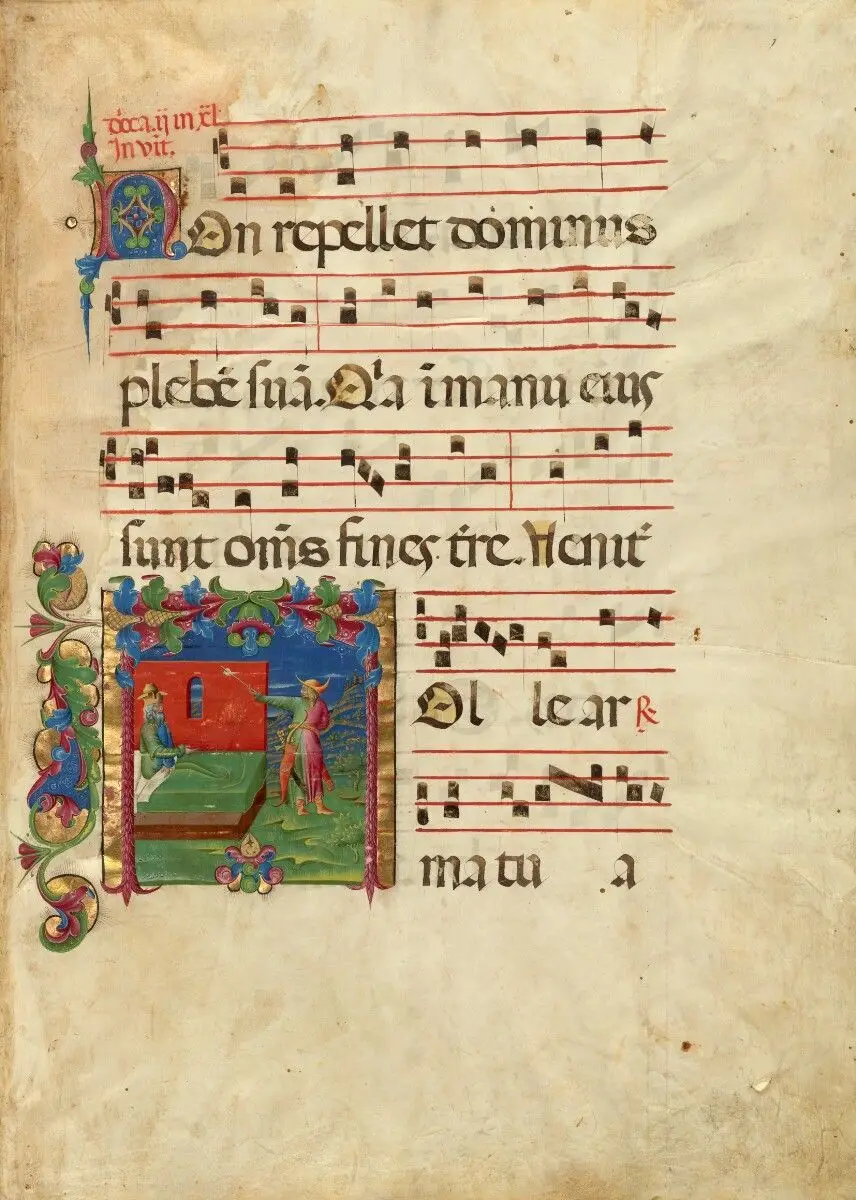 dn̄ca. ij in xl.
Invit̄.
NOn repellet dominus
plebē suā. Qͥa ī manu eius
sunt om̄s fines t̄re. Venit̄
Ol le ar ℟
ma tu a